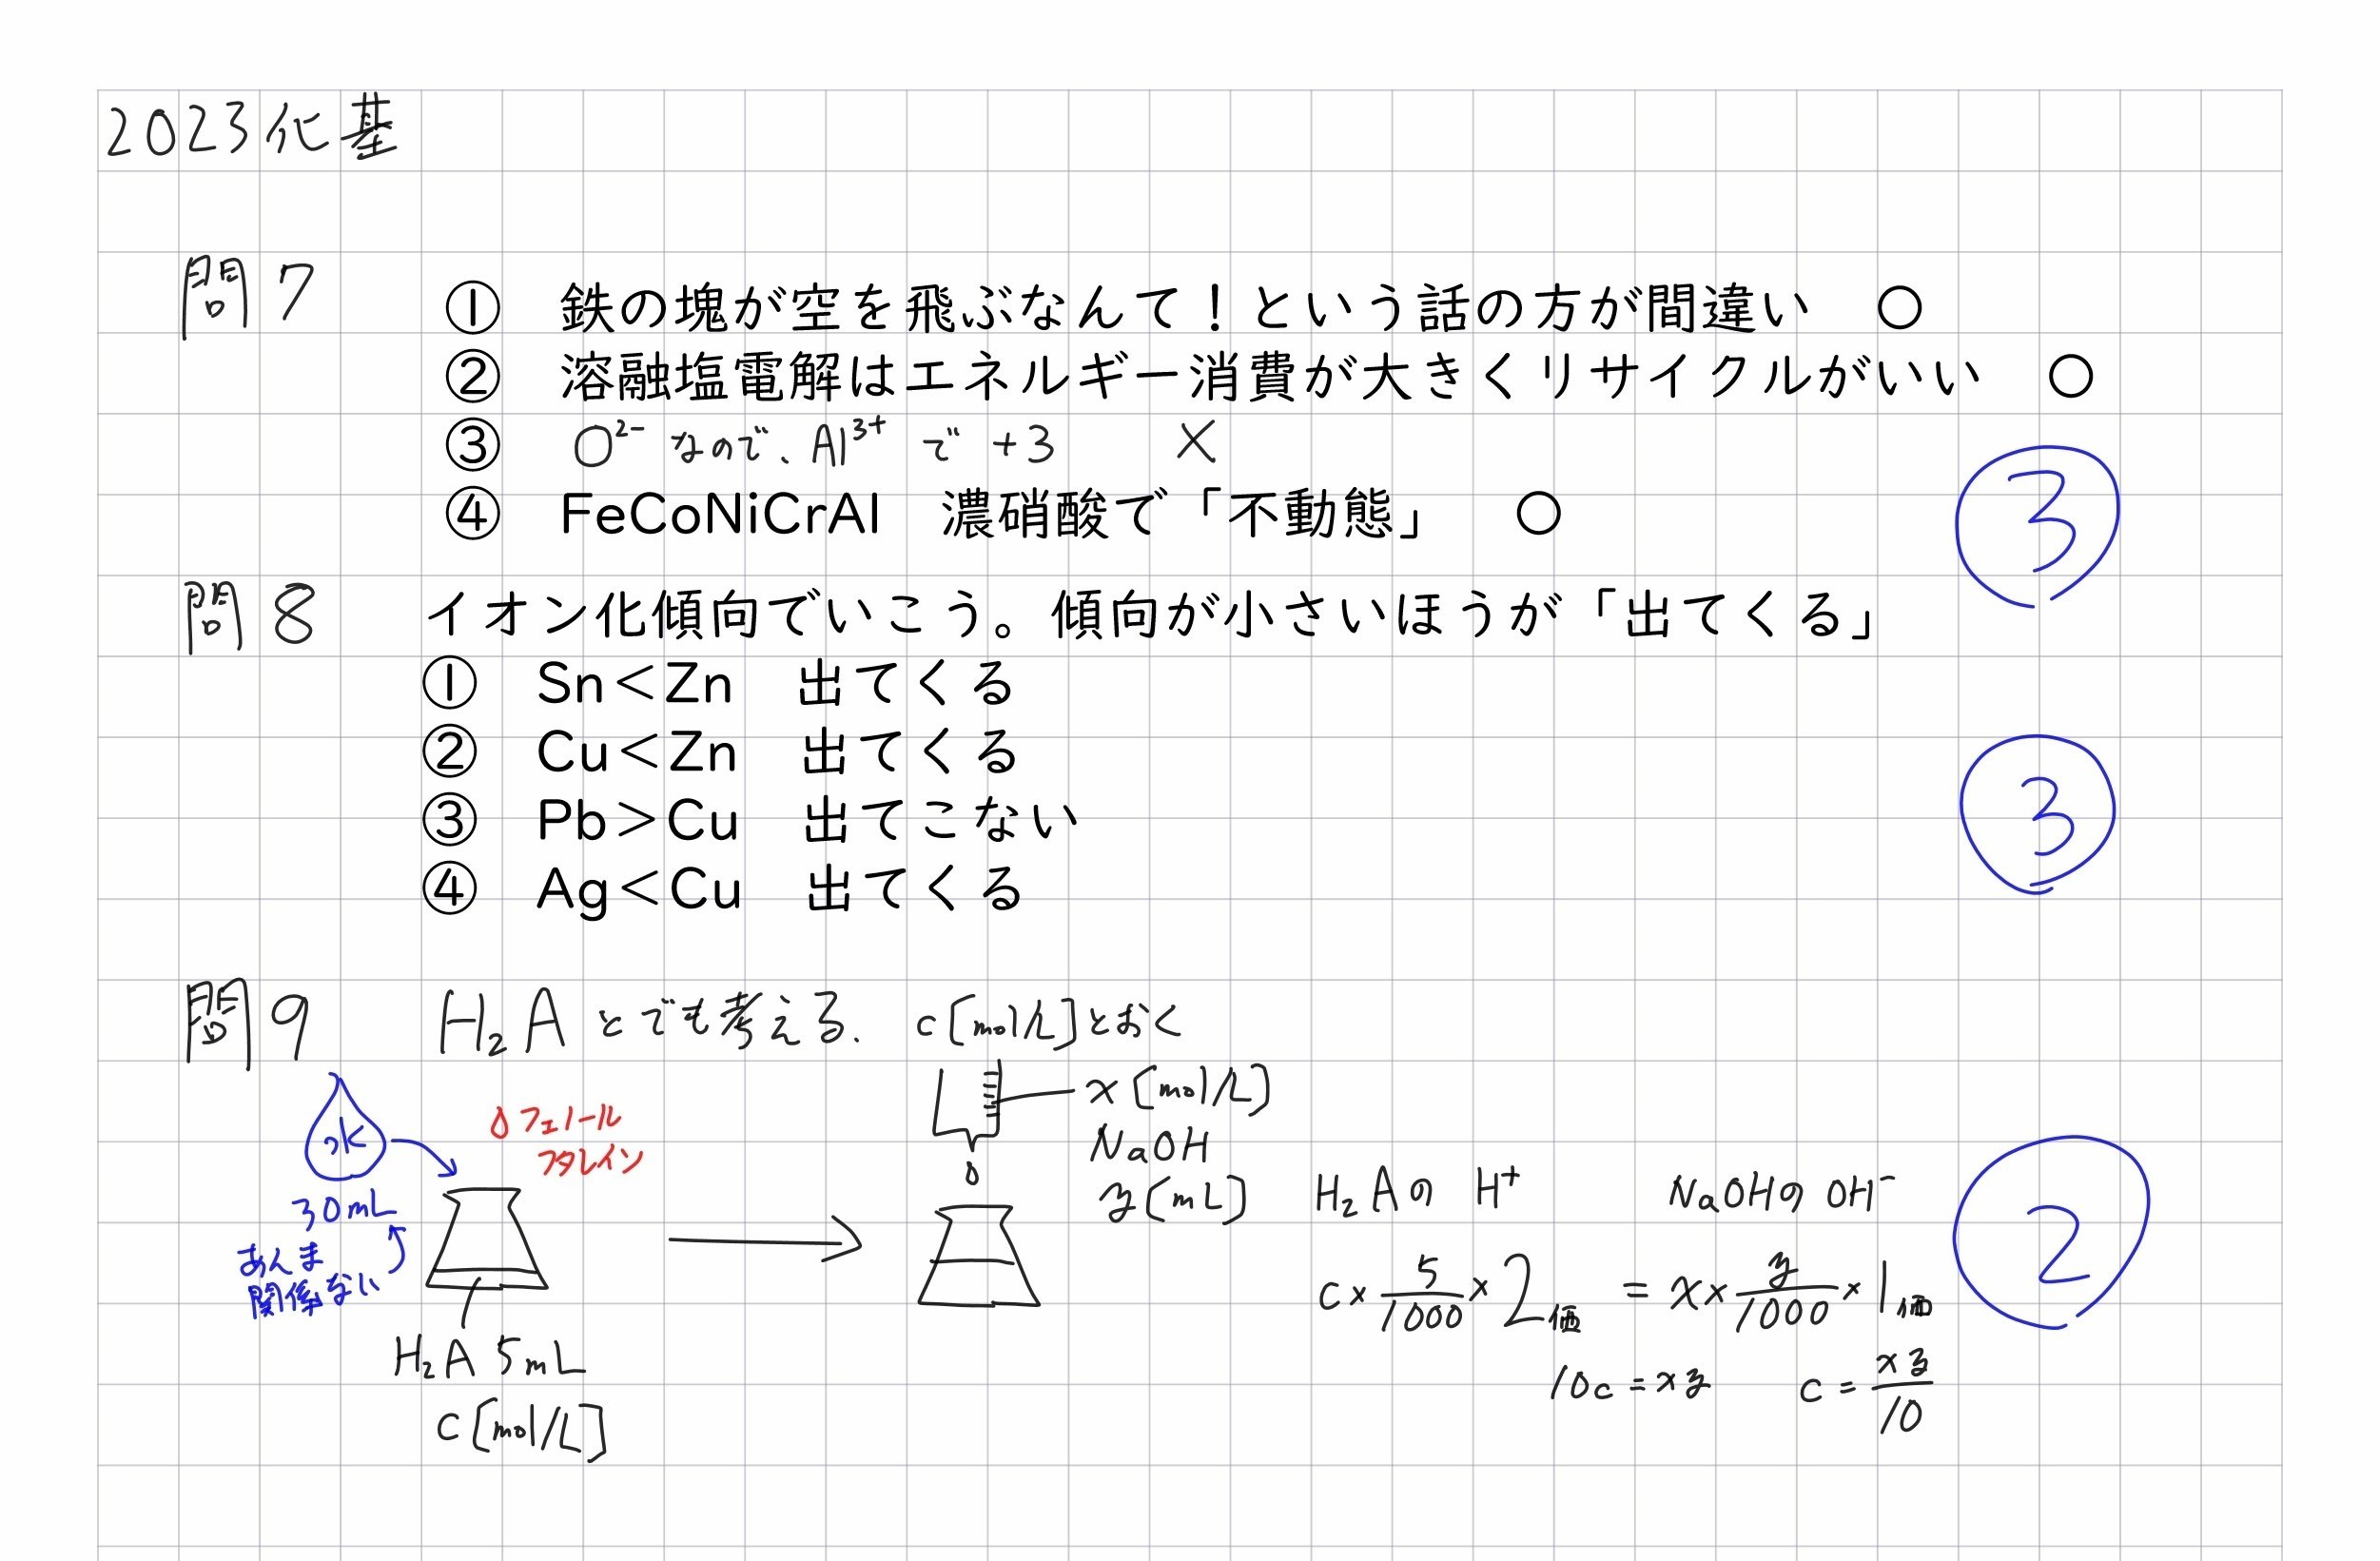 2023化基
問7
① 鉄の塊が空を飛ぶなんて！という話の方が間違い ○
② 溶融塩電解はエネルギー消費が大きくリサイクルがいい ○
③ O²⁻なので、Al³⁺で+3 ×
④ FeCoNiCrAl 濃硝酸で「不動態」 ○
③
問8 イオン化傾向でいこう。傾向が小さいほうが「出てくる」
① Sn＜Zn 出てくる
② Cu＜Zn 出てくる
③ Pb＞Cu 出てこない
④ Ag＜Cu 出てくる
③
問9 H₂Aとでも考える. c[mol/L]とおく
水
30mL
あんま
関係ない
フェノール
フタレイン
H₂A 5mL
c[mol/L]
x[mol/L]
NaOH
y[mL]
H₂AのH⁺ NaOHのOH⁻
c×5/1000×2価 = x×y/1000×1価
10c=xy c=xy/10
②